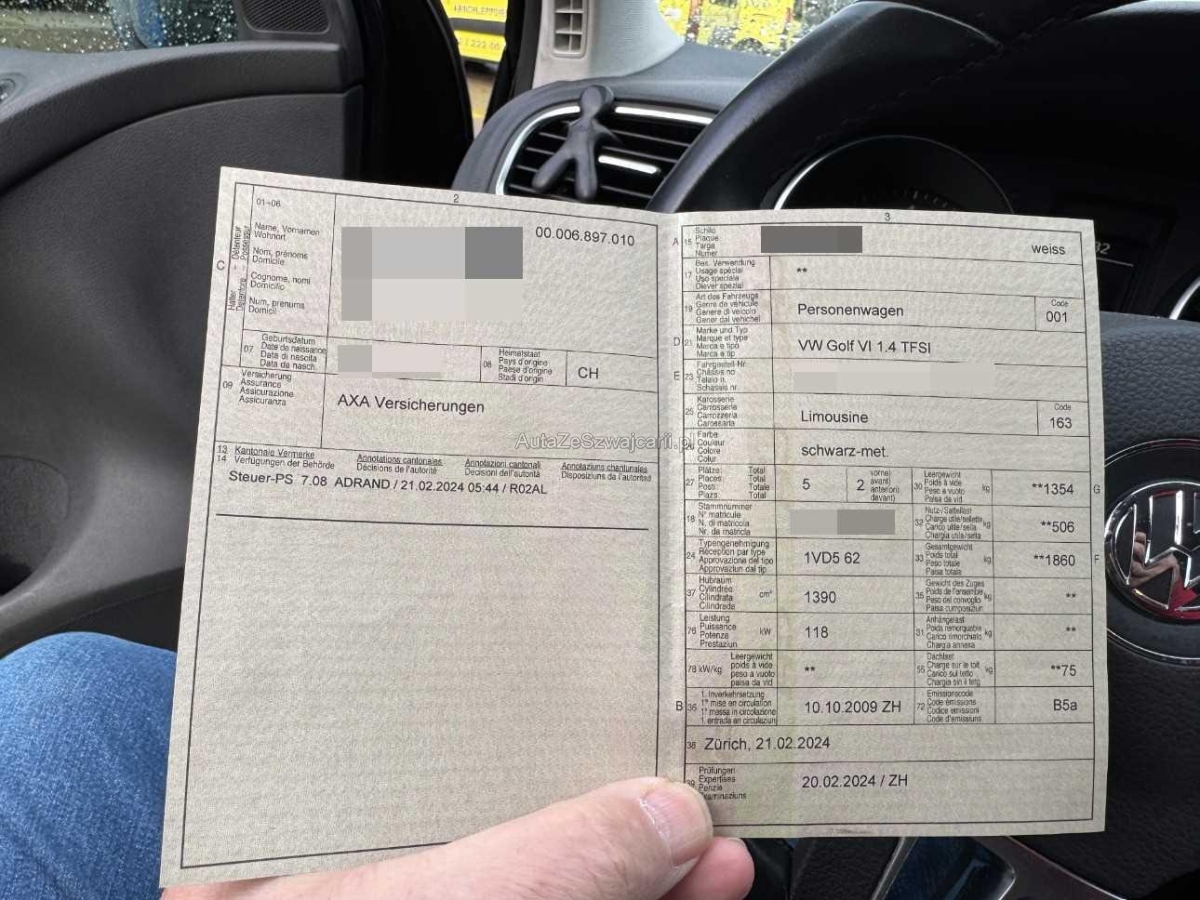 2
01-06
Name, Vornamen
Wohnort
Nom, prénoms
Domicile
Cognome, nomi
Domicilio
Num, prenums
Domicil
C
00.006.897.010
07
Geburtsdatum
Date de naissance
Data di nascita
Data da nasch.
08
Heimatstaat
Pays d'origine
Paese d'origine
Stadi d'origin
CH
09
Versicherung
Assurance
Assicurazione
Assicuranza
AXA Versicherungen
13
14
Kantonale Vermerke
Verfügungen der Behörde
Annotations cantonales
Décisions de l'autorité
Annotazioni cantonali
Decisioni dell'autorità
Annotaziuns chantunalas
Disposiziuns da l'autoritad
Steuer-PS 7.08 ADRAND / 21.02.2024 05:44 / R02AL
3
A 15
Schild
Plaque
Targa
Numer
weiss
17
Bes. Verwendung
Usage spécial
Uso speciale
Diever spezial
**
19
Art des Fahrzeugs
Genre de véhicule
Genere di veicolo
Gener dal vehichel
Personenwagen
Code
001
D 21
Marke und Typ
Marque et type
Marca e tipo
Marca e tip
VW Golf VI 1.4 TFSI
E 23
Fahrgestell-Nr.
Châssis no
Telaio n.
Schassis nr.
25
Karosserie
Carrosserie
Carrozzeria
Carossaria
Limousine
Code
163
Farbe
Couleur
Colore
Colur
schwarz-met.
27
Plätze Total
Places Total
Posti Totale
Plazs Total
5
2
vorne)
avant)
anteriori)
davant)
30
Leergewicht
Poids à vide
Peso a vuoto
Paisa da vid
kg
**1354
G
18
Stammnummer
N° matricule
N. di matricola
Nr. da matricla
32
Nutz-/Sattellast
Charge utile/sellette
Carico utile/sella
Chargia utila/sella
kg
**506
24
Typengenehmigung
Réception par type
Approvazione del tipo
Approvaziun dal tip
1VD5 62
33
Gesamtgewicht
Poids total
Peso totale
Paisa totala
kg
**1860
F
37
Hubraum
Cylindrée
Cilindrata
Cilindrada
cm³
1390
35
Gewicht des Zuges
Poids de l'ensemble
Peso del convoglio
Paisa cumposiziun
kg
**
76
Leistung
Puissance
Potenza
Prestaziun
kW
118
31
Anhängelast
Poids remorquable
Carico rimorchiato
Chargia annexa
kg
**
78 kW/kg
Leergewicht
poids à vide
peso a vuoto
paisa da vid
**
55
Dachlast
Charge sur le toit
Carico sul tetto
Chargia sin il tetg
kg
**75
B 36
1. Inverkehrsetzung
1re mise en circulation
1a messa in circolazione
1. entrada en circulaziun
10.10.2009 ZH
72
Emissionscode
Code émissions
Codice emissioni
Code d'emissiuns
B5a
38
Zürich, 21.02.2024
39
Prüfungen
Expertises
Perizie
Examinaziuns
20.02.2024 / ZH
AutaZeSzwajcarii.pl